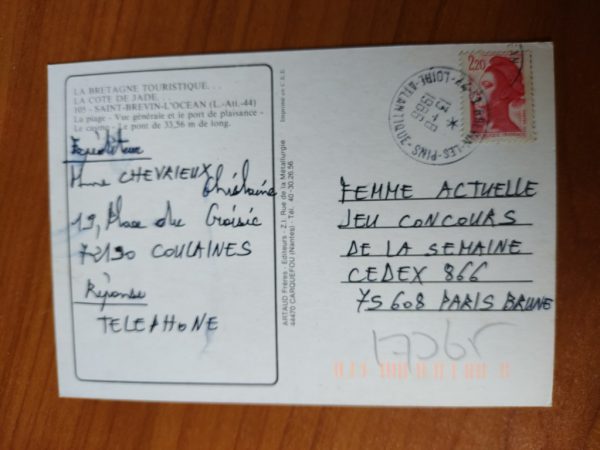 LA BRETAGNE TOURISTIQUE...
LA COTE DE JADE...
105 - SAINT-BREVIN-L'OCEAN (L.-Atl.-44)
La plage - Vue générale et le port de plaisance -
Le casino - Le pont de 33,56 m de long.
Expéditeur
Mme CHEVRIEUX Ghislaine
19, Place du Croisic
72190 COULAINES
Réponse
TELEPHONE
ARTAUD Frères - Editeurs - Z.I. Rue de la Métallurgie
44470 CARQUEFOU (Nantes) - Tél. 40-30.26.56
Imprimé en C.E.E.
LES-PINS
LOIRE-ATLANTIQUE
2,20
FEMME ACTUELLE
JEU CONCOURS
DE LA SEMAINE
CEDEX 866
75608 PARIS BRUNE